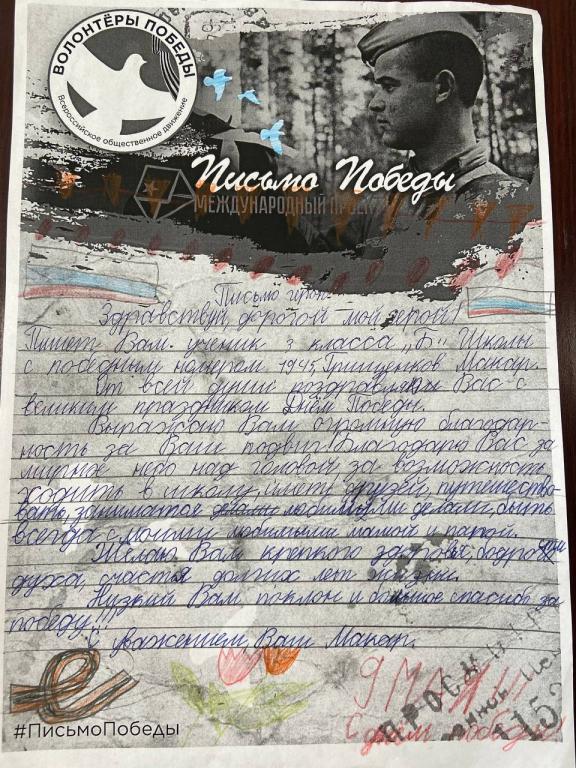 ВОЛОНТЁРЫ ПОБЕДЫ
Всероссийское общественное движение
Письмо Победы
МЕЖДУНАРОДНЫЙ ПРОЕКТ
Письмо герою
Здравствуй, дорогой мой герой!
Пишет Вам ученик 3 класса „Б" школы
с победным номером 1945, Грищенков Макар.
От всей души поздравляю Вас с
великим праздником Днём Победы.
Выражаю Вам огромную благодар-
ность за Ваш подвиг. Благодарю Вас за
мирное небо над головой, за возможность
ходить в школу, иметь друзей, путешество-
вать, заниматься любимыми делами, быть
всегда с моими любимыми мамой и папой.
Желаю Вам крепкого здоровья, бодрости
духа, счастья, долгих лет жизни.
Низкий Вам поклон и большое спасибо за
победу!!!
С уважением, Ваш Макар.
9 МАЯ!!!
С днём победы!
#ПисьмоПобеды